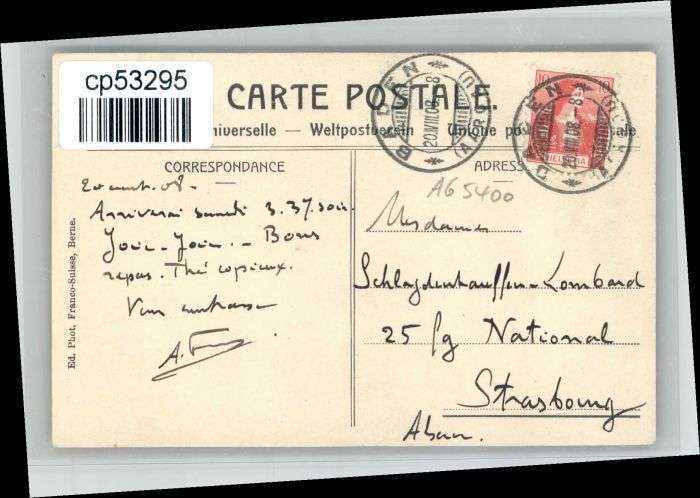 cp53295
CARTE POSTALE.
niverselle — Weltpostverein — Unione pos ale.
BADEN
20.VIII.08.-8
(AARGAU)
BADEN
20.VIII.08.-8
10
HELVETIA
CORRESPONDANCE
ADRES
AG 5400
20 août. 08.
Arriverai samedi 3.37 soir.
Joie - Joie. - Bons
repas. Thé copieux.
Vous embrasse
A.
Mesdames
Schlagdenhauffen-Lombard
25 fg National
Strasbourg
Alsace.
Ed. Phot. Franco-Suisse, Berne.